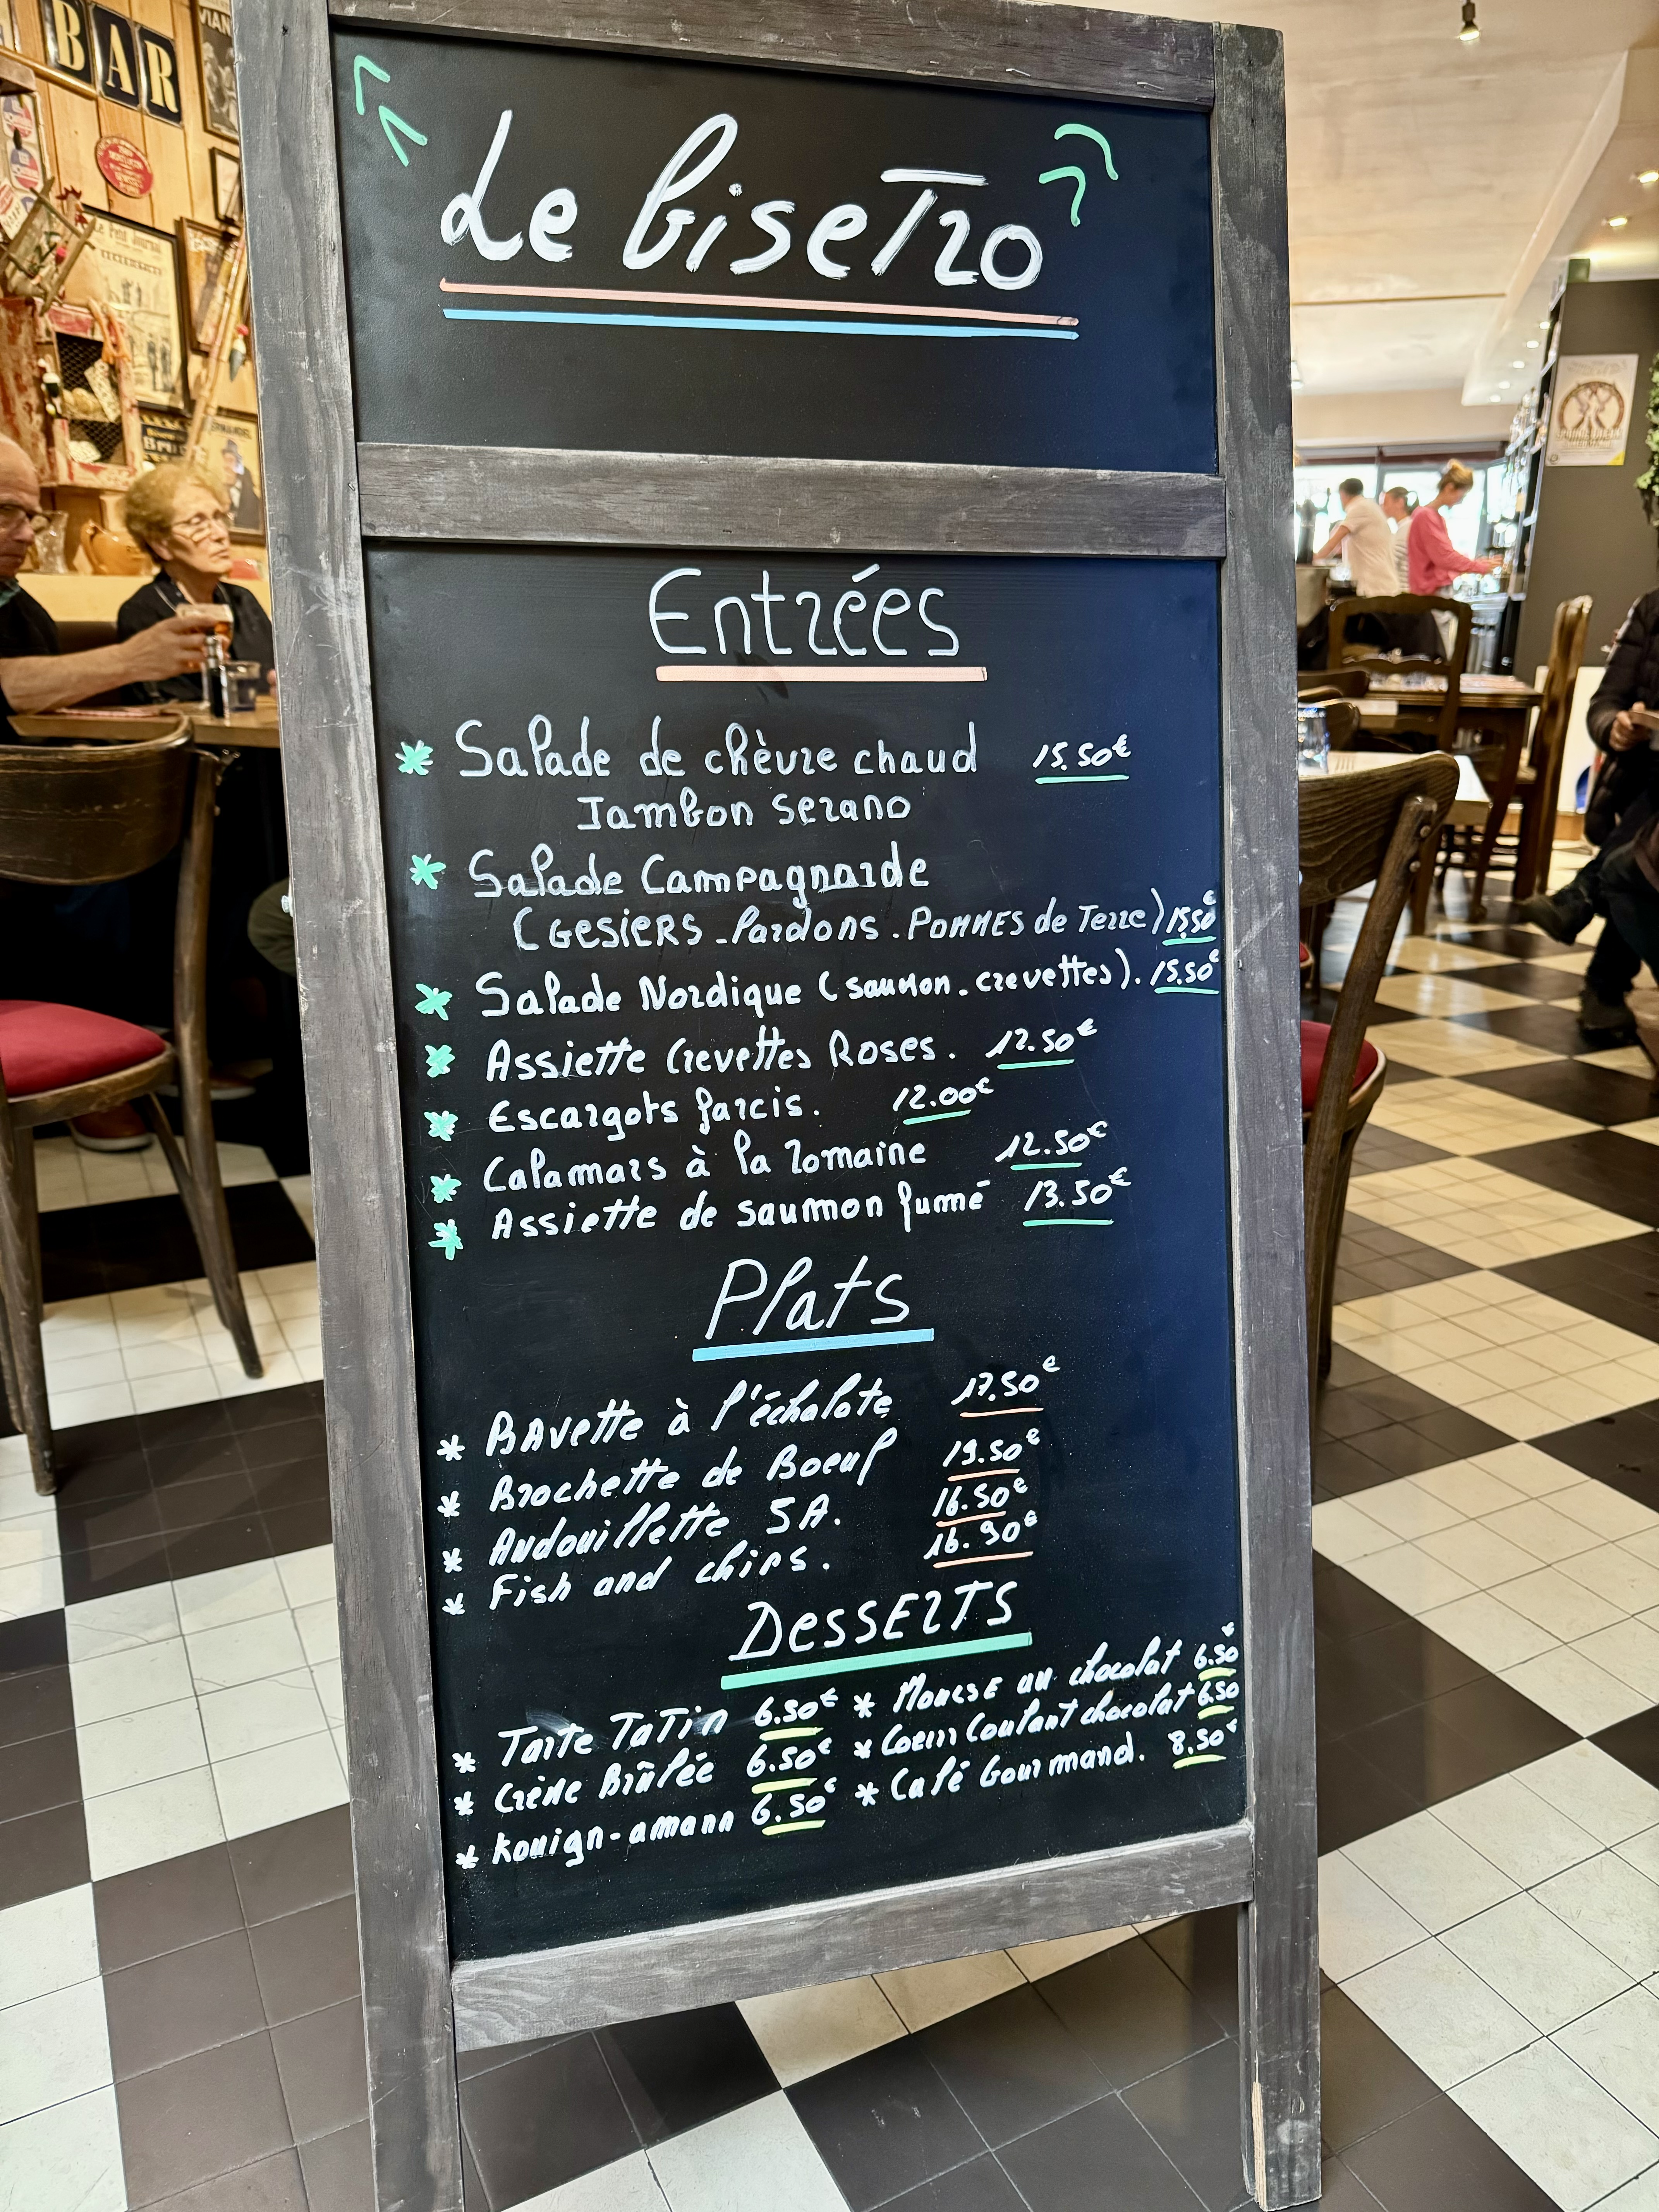 BAR
Le biseTro
Entrées
* Salade de chèvre chaud 15.50€
Jambon Serano
* Salade Campagnarde
(GESIERS - lardons . POMMES de Terre) 15.50€
* Salade Nordique (saumon . crevettes). 15.50€
* Assiette Crevettes Roses. 12.50€
* Escargots farcis. 12.00€
* Calamars à la romaine 12.50€
* Assiette de saumon fumé 13.50€
Plats
* BAvette à l'échalote 17.50€
* Brochette de Boeuf 19.50€
* Andouillette 5A. 16.50€
* Fish and chips. 16.90€
DessERTS
* Tarte TaTin 6.50€ * Mousse au chocolat 6.50€
* Crème Brûlée 6.50€ * Coeur Coulant chocolat 6.50
* Kouign-amann 6.50€ * Café Gourmand. 8.50€